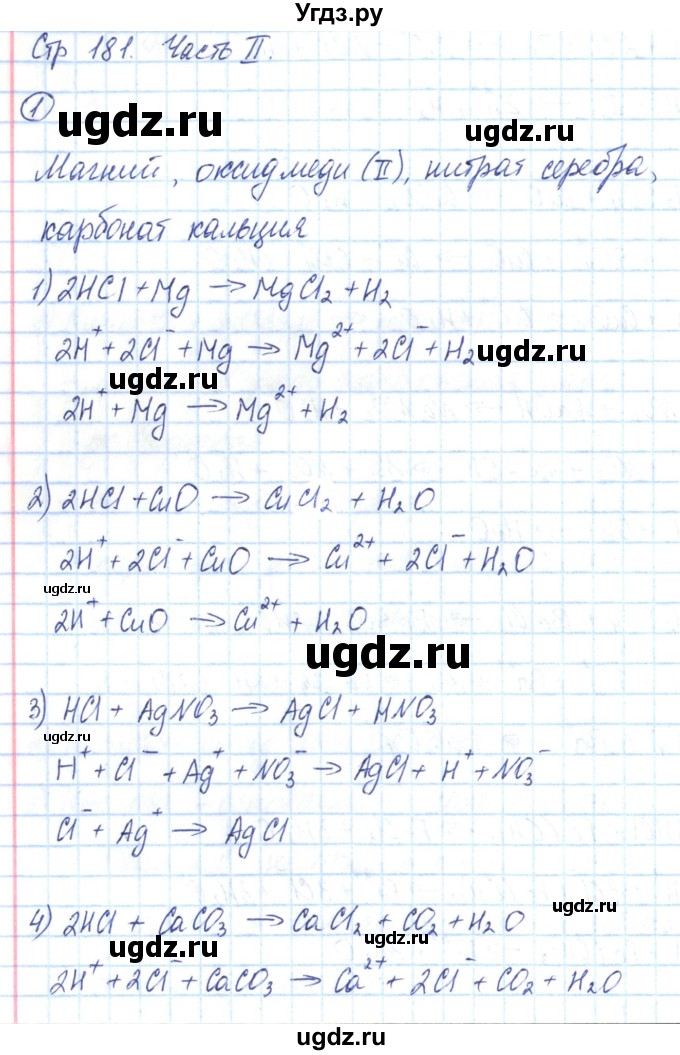 Угдз.ру
Стр 181. Часть II.
1
ugdz.ru
ugdz.ru
Магний, оксид меди (II), нитрат серебра,
карбонат кальция
1) 2HCl + Mg → MgCl₂ + H₂
2H⁺ + 2Cl⁻ + Mg → Mg²⁺ + 2Cl⁻ + H₂
ugdz.ru
ugdz.ru
2H⁺ + Mg → Mg²⁺ + H₂
2) 2HCl + CuO → CuCl₂ + H₂O
2H⁺ + 2Cl⁻ + CuO → Cu²⁺ + 2Cl⁻ + H₂O
ugdz.ru
2H⁺ + CuO → Cu²⁺ + H₂O
ugdz.ru
3) HCl + AgNO₃ → AgCl + HNO₃
ugdz.ru
H⁺ + Cl⁻ + Ag⁺ + NO₃⁻ → AgCl + H⁺ + NO₃⁻
Cl⁻ + Ag⁺ → AgCl
ugdz.ru
4) 2HCl + CaCO₃ → CaCl₂ + CO₂ + H₂O
ugdz.ru
ugdz.ru
2H⁺ + 2Cl⁻ + CaCO₃ → Ca²⁺ + 2Cl⁻ + CO₂ + H₂O
ugdz.ru